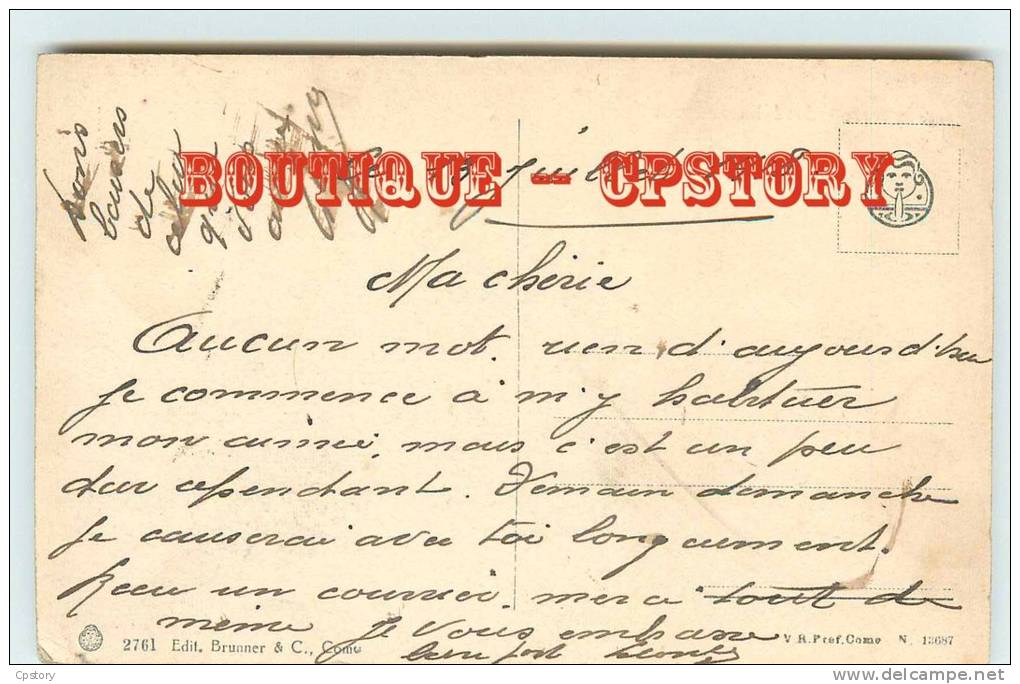 BOUTIQUE -- CPSTORY
Le 13 Juillet
Ma chérie
Aucun mot. rien d'aujourd'hui
Je commence à m'y habituer
mon aimée, mais c'est un peu
dur cependant. Demain dimanche
Je causerai avec toi longuement.
Recu un courrier. merci tout de
même Je vous embrasse
bien fort
bons
baisers
de
celui
qui
2761 Edit. Brunner & C., Como
V R. Pref. Como N. 13687
Cpstory
delcampe.net